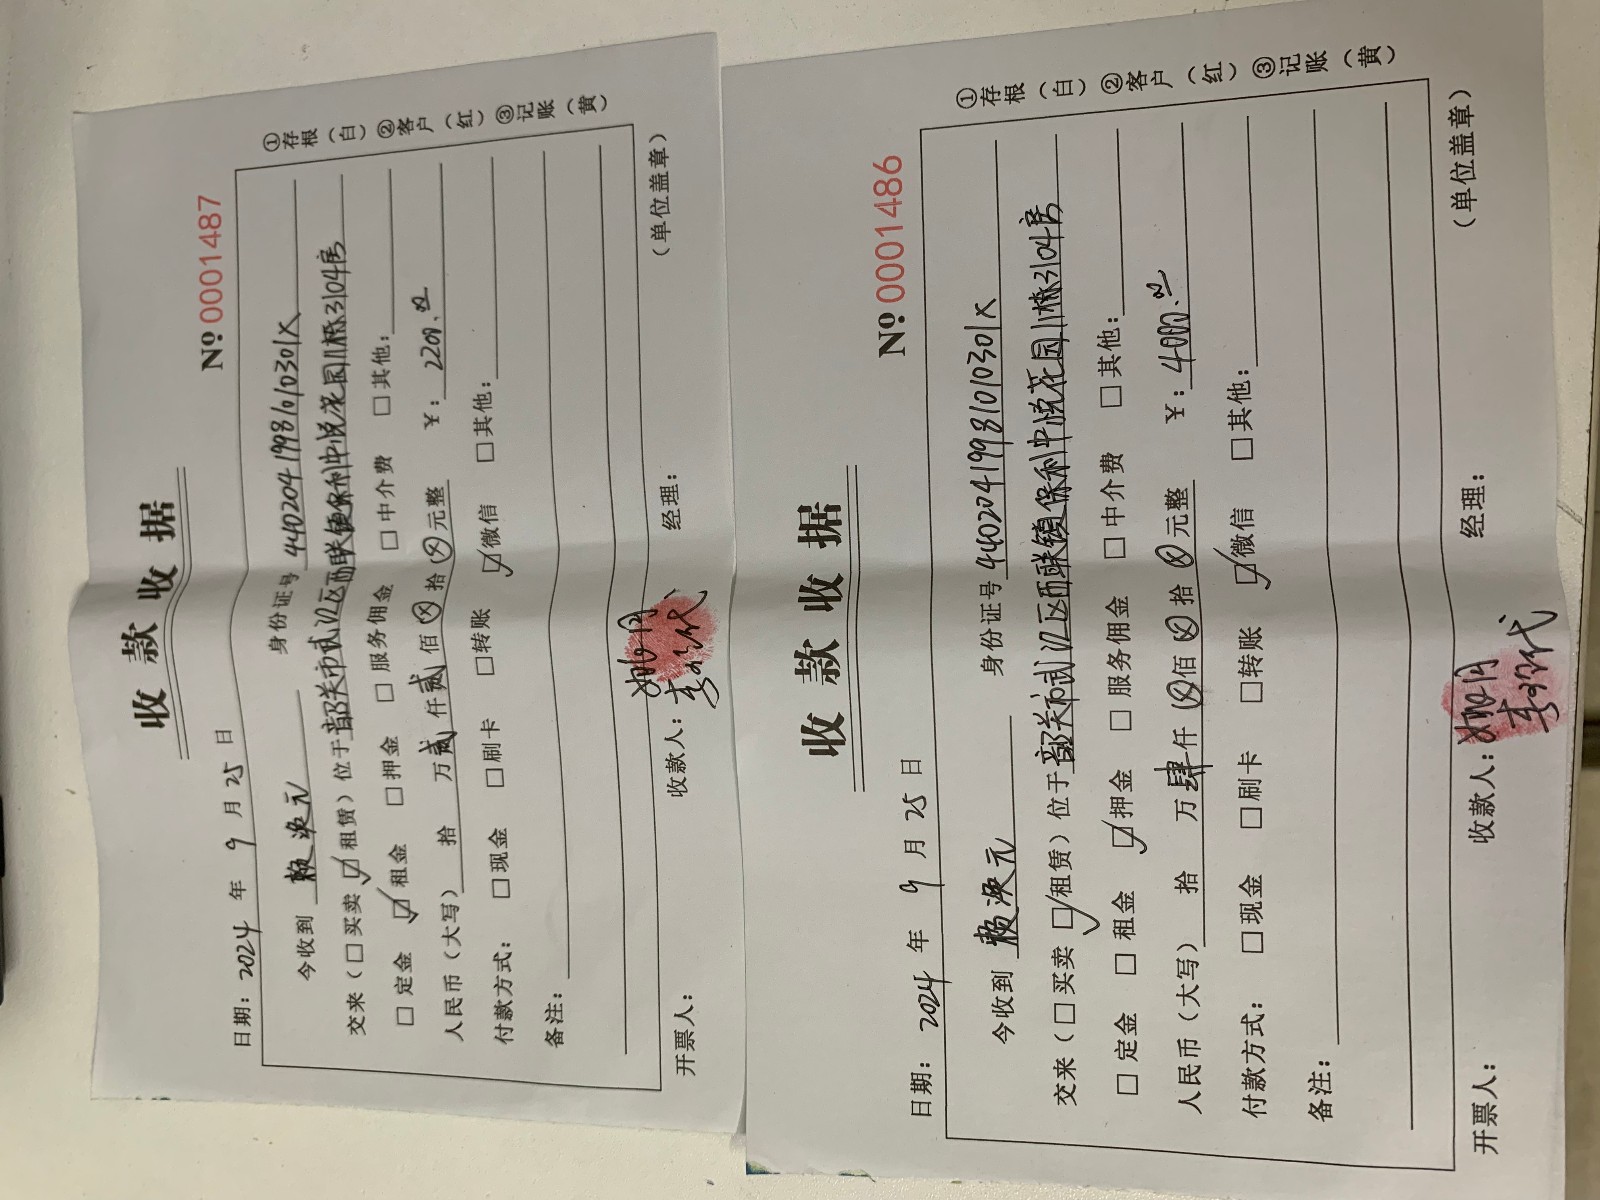 收款收据
№ 0001487
日期：2024 年 9 月 25 日
今收到 赖涣元 身份证号 44020419981010301X
交来（□买卖 ☑租赁）位于 韶关市武江区西联镇保利中悦花园11栋3104房
□定金 ☑租金 □押金 □服务佣金 □中介费 □其他：
人民币（大写） 拾 万 贰 仟 贰 佰 ⊗ 拾 ⊗ 元整 ¥：2200.00
付款方式： □现金 □刷卡 □转账 ☑微信 □其他：
备注：
开票人： 收款人： 代 经理： （单位盖章）
①存根（白）②客户（红）③记账（黄）
收款收据
№ 0001486
日期：2024 年 9 月 25 日
今收到 赖涣元 身份证号 44020419981010301X
交来（□买卖 ☑租赁）位于 韶关市武江区西联镇保利中悦花园11栋3104房
□定金 □租金 ☑押金 □服务佣金 □中介费 □其他：
人民币（大写） 拾 万 肆 仟 ⊗ 佰 ⊗ 拾 ⊗ 元整 ¥：4000.00
付款方式： □现金 □刷卡 □转账 ☑微信 □其他：
备注：
开票人： 收款人： 代 经理： （单位盖章）
①存根（白）②客户（红）③记账（黄）